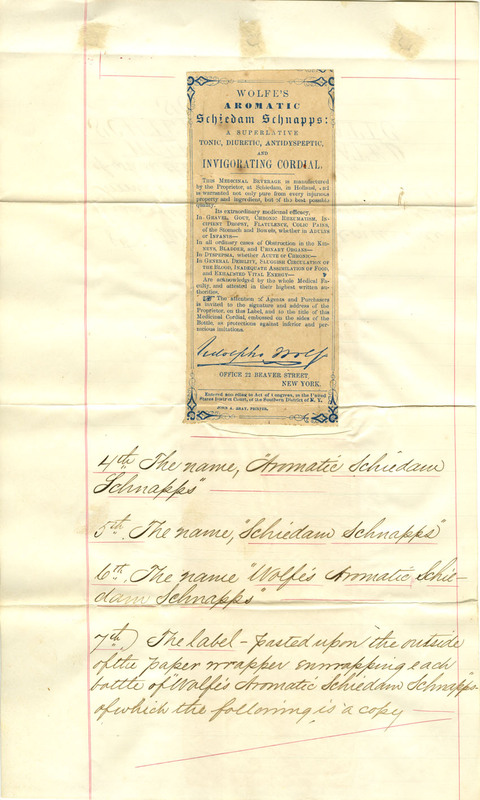 WOLFE'S
AROMATIC
Schiedam Schnapps:
A SUPERLATIVE
TONIC, DIURETIC, ANTIDYSPEPTIC,
AND
INVIGORATING CORDIAL.
THIS MEDICINAL BEVERAGE is manufactured
by the Proprietor, at Schiedam, in Holland, and
is warranted not only pure from every injurious
property and ingredient, but of the best possible
quality.
Its extraordinary medicinal efficacy,
In GRAVEL, GOUT, CHRONIC RHEUMATISM, IN-
CIPIENT DROPSY, FLATULENCE, COLIC PAINS,
of the Stomach and Bowels, whether in ADULTS
or INFANTS—
In all ordinary cases of Obstruction in the KID-
NEYS, BLADDER, and URINARY ORGANS—
In DYSPEPSIA, whether ACUTE or CHRONIC—
In GENERAL DEBILITY, SLUGGISH CIRCULATION OF
THE BLOOD, INADEQUATE ASSIMILATION OF FOOD,
and EXHAUSTED VITAL ENERGY—
Are acknowledged by the whole Medical Fa-
culty, and attested in their highest written au-
thorities.
☞ The attention of Agents and Purchasers
is invited to the signature and address of the
Proprietor, on this Label, and to the title of this
Medicinal Cordial, embossed on the sides of the
Bottle, as protections against inferior and per-
nicious imitations.
Udolpho Wolfe
OFFICE 22 BEAVER STREET
NEW YORK.
Entered according to Act of Congress, in the United
States District Court, of the Southern District of N. Y.
JOHN A. GRAY, PRINTER.
4th The name, Aromatic Schiedam
Schnapps"
5th. The name, "Schiedam Schnapps"
6th. The name "Wolfe's Aromatic Schie-
dam Schnapps"
7th) The label - pasted upon the outside
of the paper wrapper enwrapping each
bottle of "Wolfe's Aromatic Schiedam Schnapps"
of which the following is a copy